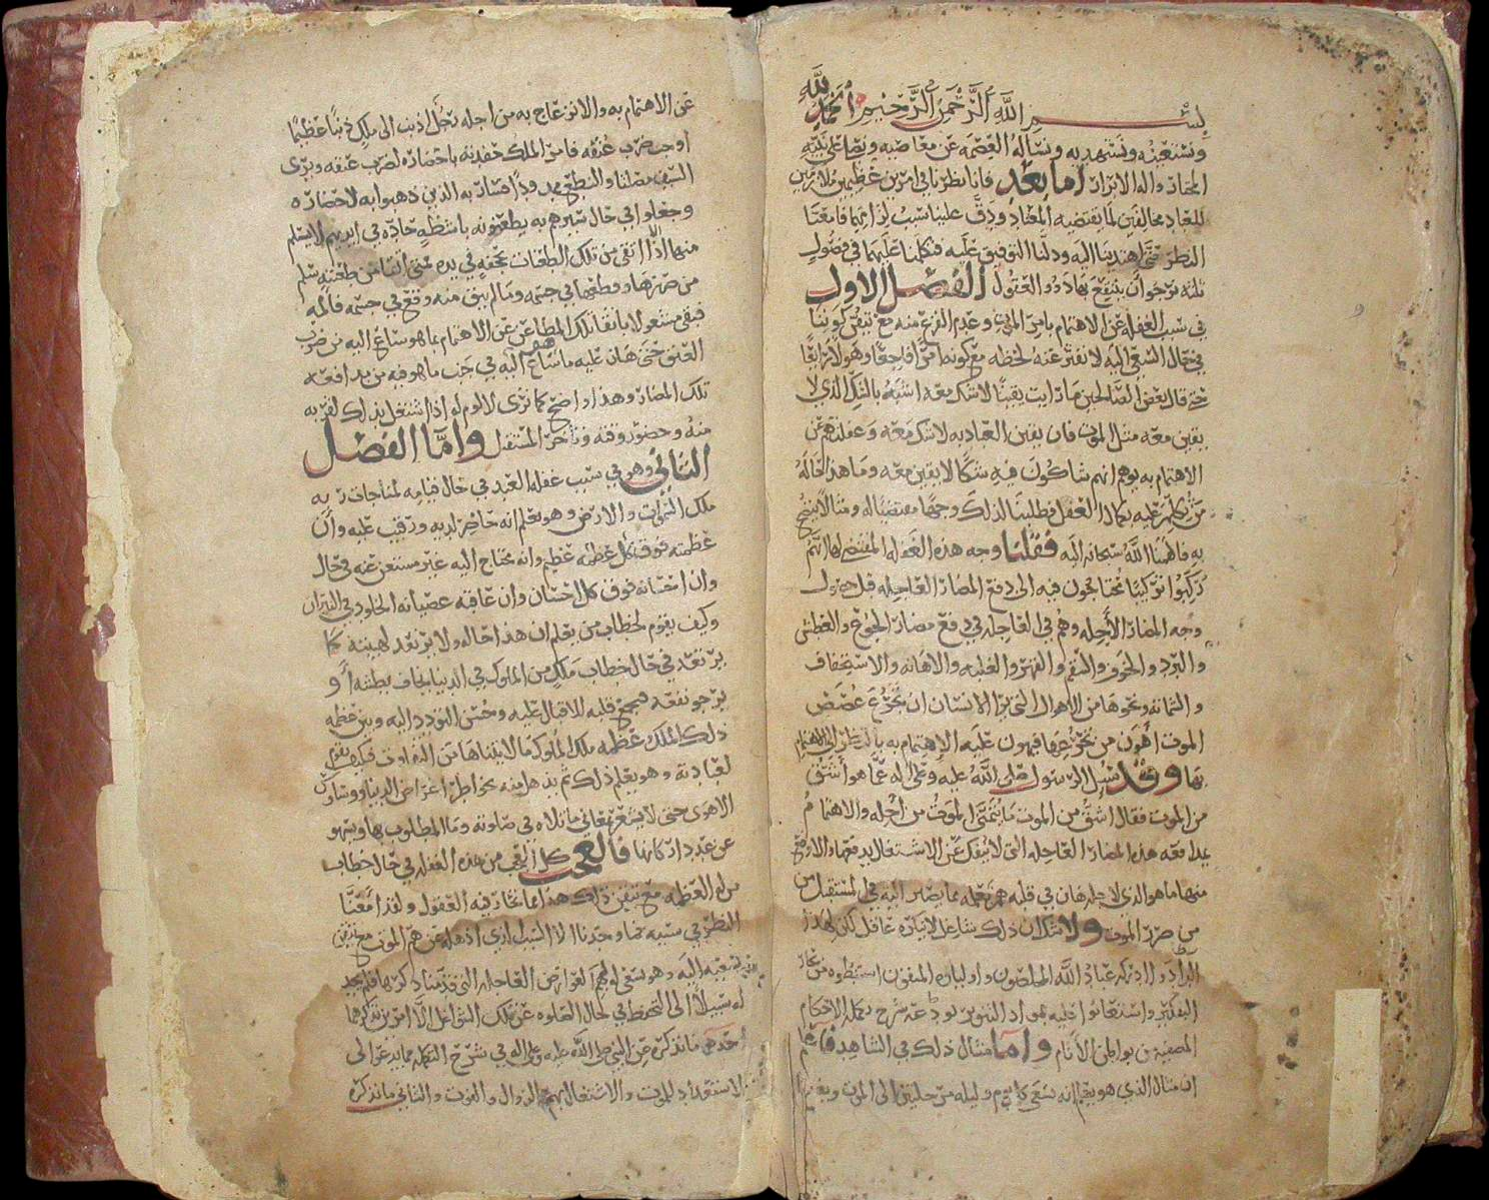 بسم الله الرحمن الرحيم الحمد لله
ونستعينه ونستهديه ونسأله العصمة عن معاصيه ونصلي على نبيه
المختار واله الابرار اما بعد فانا نظرنا في امرين عظيمين ملازمين
للعباد مخالفين لما يقتضيه المعتاد ودق علينا سبب لزامهما فامعنا
النظر حتى اهتدينا اليه ودلنا التوفيق عليه فتكلمنا عليهما في فصول
ثلثه نرجو ان ينتفع بها ذوو العقول الفصل الاول
في سبب الغفلة عن الاهتمام بامر الموت وعدم الفزع منه مع تيقن كوننا
في حال السعي اليه لا نفتر عنه لحظه مع كونه امرا فاجعا وهولا رايعا
حتى قال بعض الصالحين ما رايت يقينا لا شك معه اشبه بالشك الذي لا
يقين معه مثل الموت فان يقين العباد به لا شك معه وغفلتهم عن
الاهتمام به يوهم انهم شاكون فيه شكا لا يقين معه وما هذا حاله
من يحكم عليه بكمال العقل فطلبنا لذلك وجها مقتضيا له ومثالا يتضح
به فالهمنا الله سبحانه اليه فقلنا وجه هذه الغفله المقتضي لها انهم
ركبوا تركيبا محتاجون فيه الى دفع المضار العاجله قبل حضول
وجه المضار الآجله وهم في العاجله في دفع مضار الجوع والعطش
والبرد والخوف والسقم والقهر والغلبه والاهانه والاستخفاف
والشماته ونحوها من الاهوال التي يرا الانسان ان تجرع غصص
الموت اهون من تجرعها فيهون عليه الاهتمام به بالنظر الى الاهتمام
بها وقد سئل الرسول صلى الله عليه وعلى اله عما هو اشق
من الموت فقال اشق من الموت ما يتمنى الموت من اجله والاهتمام
بمدافعه هذه المضار العاجله التي لا ينفك عن الاشتغال بدفعها والا وقع
منها ما هو الذي لاجله هان في قلبه همّ بما يصير اليه في المستقبل من
من ضرر الموت ولا شك ان ذلك شاغل لا ينكره عاقل لكن لهذا
الدا دوا ادركه عباد الله الصالحون واولياه المتقون استنبطوه من بحار
التفكير واستعانوا عليه بمواد التنوير
المصفيه من بواطن الانام واما مثال ذلك في الشاهد فاعلم
ان مثال الذي هو يعلم انه يسعى كل يوم وليله مرحلتين الى الموت ويغفل
عن الاهتمام به والانزعاج به من اجله رجل اذنب الى ملك ذنبا عظيما
اوجب ضرب عنقه فامر الملك حفدته باحضاره لضرب عنقه ويرى
السيف مصلتا والنطع ممدودا فسار به الذين ذهبوا به لاحضاره
وجعلوا في حال سيرهم به يطعنونه حاده في ايديهم لا يسلم
منها الا ان اتقى من تلك الطعنات بمجنه في يده فمتى اتقا من طعنته سلم
من ضررها ووقعها في جسمه وما لم يتق منه وقع في جسمه فآلمه
فبقي مشغولا باتقا تلك المطاعن عن الاهتمام بما هو ساع اليه من ضرب
العنق حتى هان عليه ما ساع اليه في جنب ما هو فيه من مدافعه
تلك المضار وهذا واضح كما ترى لا لوم له اذا اشتغل بذلك لقربه
منه وحضور وقته وتأخر المستقبل واما الفصل
الثاني وهو في سبب غفله العبد في حال قيامه لمناجات ربه
ملك السموات والارض وهو يعلم انه حاضر لديه ورقيب عليه وان
عظمته فوق كل عظمه عظيم وانه محتاج اليه غير مستغن عنه في حال
وان احسانه فوق كل احسان وان عاقبه عصيانه الخلود في النيران
وكيف يقوم لخطاب من يعلم ان هذا حاله ولا يرتعد لهيبته كما
يرتعد في حال خطاب ملك من الملوك في الدنيا يخاف بطشه او
يرجو نفعه فيجمع قلبه للاقبال عليه وحسن التودد اليه وبين عظمه
ذلك الملك وعظمه ملك الملوك ما لا يتناها من التفاوت فكيف يقوم
لعبادته وهو يعلم ذلك ثم يذهل منه بخواطر اغراض الدنيا ووساوس
الاهوى حتى لا يشعر بمعاني ما تلاه في صلوته وما المطلوب بها ويسهو
عن عدد اركانها فالعجب كل العجب من هذه الغفله في حال خطاب
مولى العظمه مع تيقن ذلك هذا مما تحار فيه العقول ولقد امعنا
النظر في سببه فما وجدنا الا السبب الذي اذهله عن هم الموت مع تيقن
سعيه اليه وهو سعى لوهم العوارض العاجله التي قدمنا ذكرها فلم يجد
له سبيلا الى التحفظ في حال الصلوه عن تلك الشواغل الا امرين نذكرهما
احدهما ما نذكره عن النبي صلى الله عليه وعلى اله في شرح التكمله مما يدعو الى
الاستعداد للموت والاشتغال بهم الزوال والفوت والثاني ما نذكره